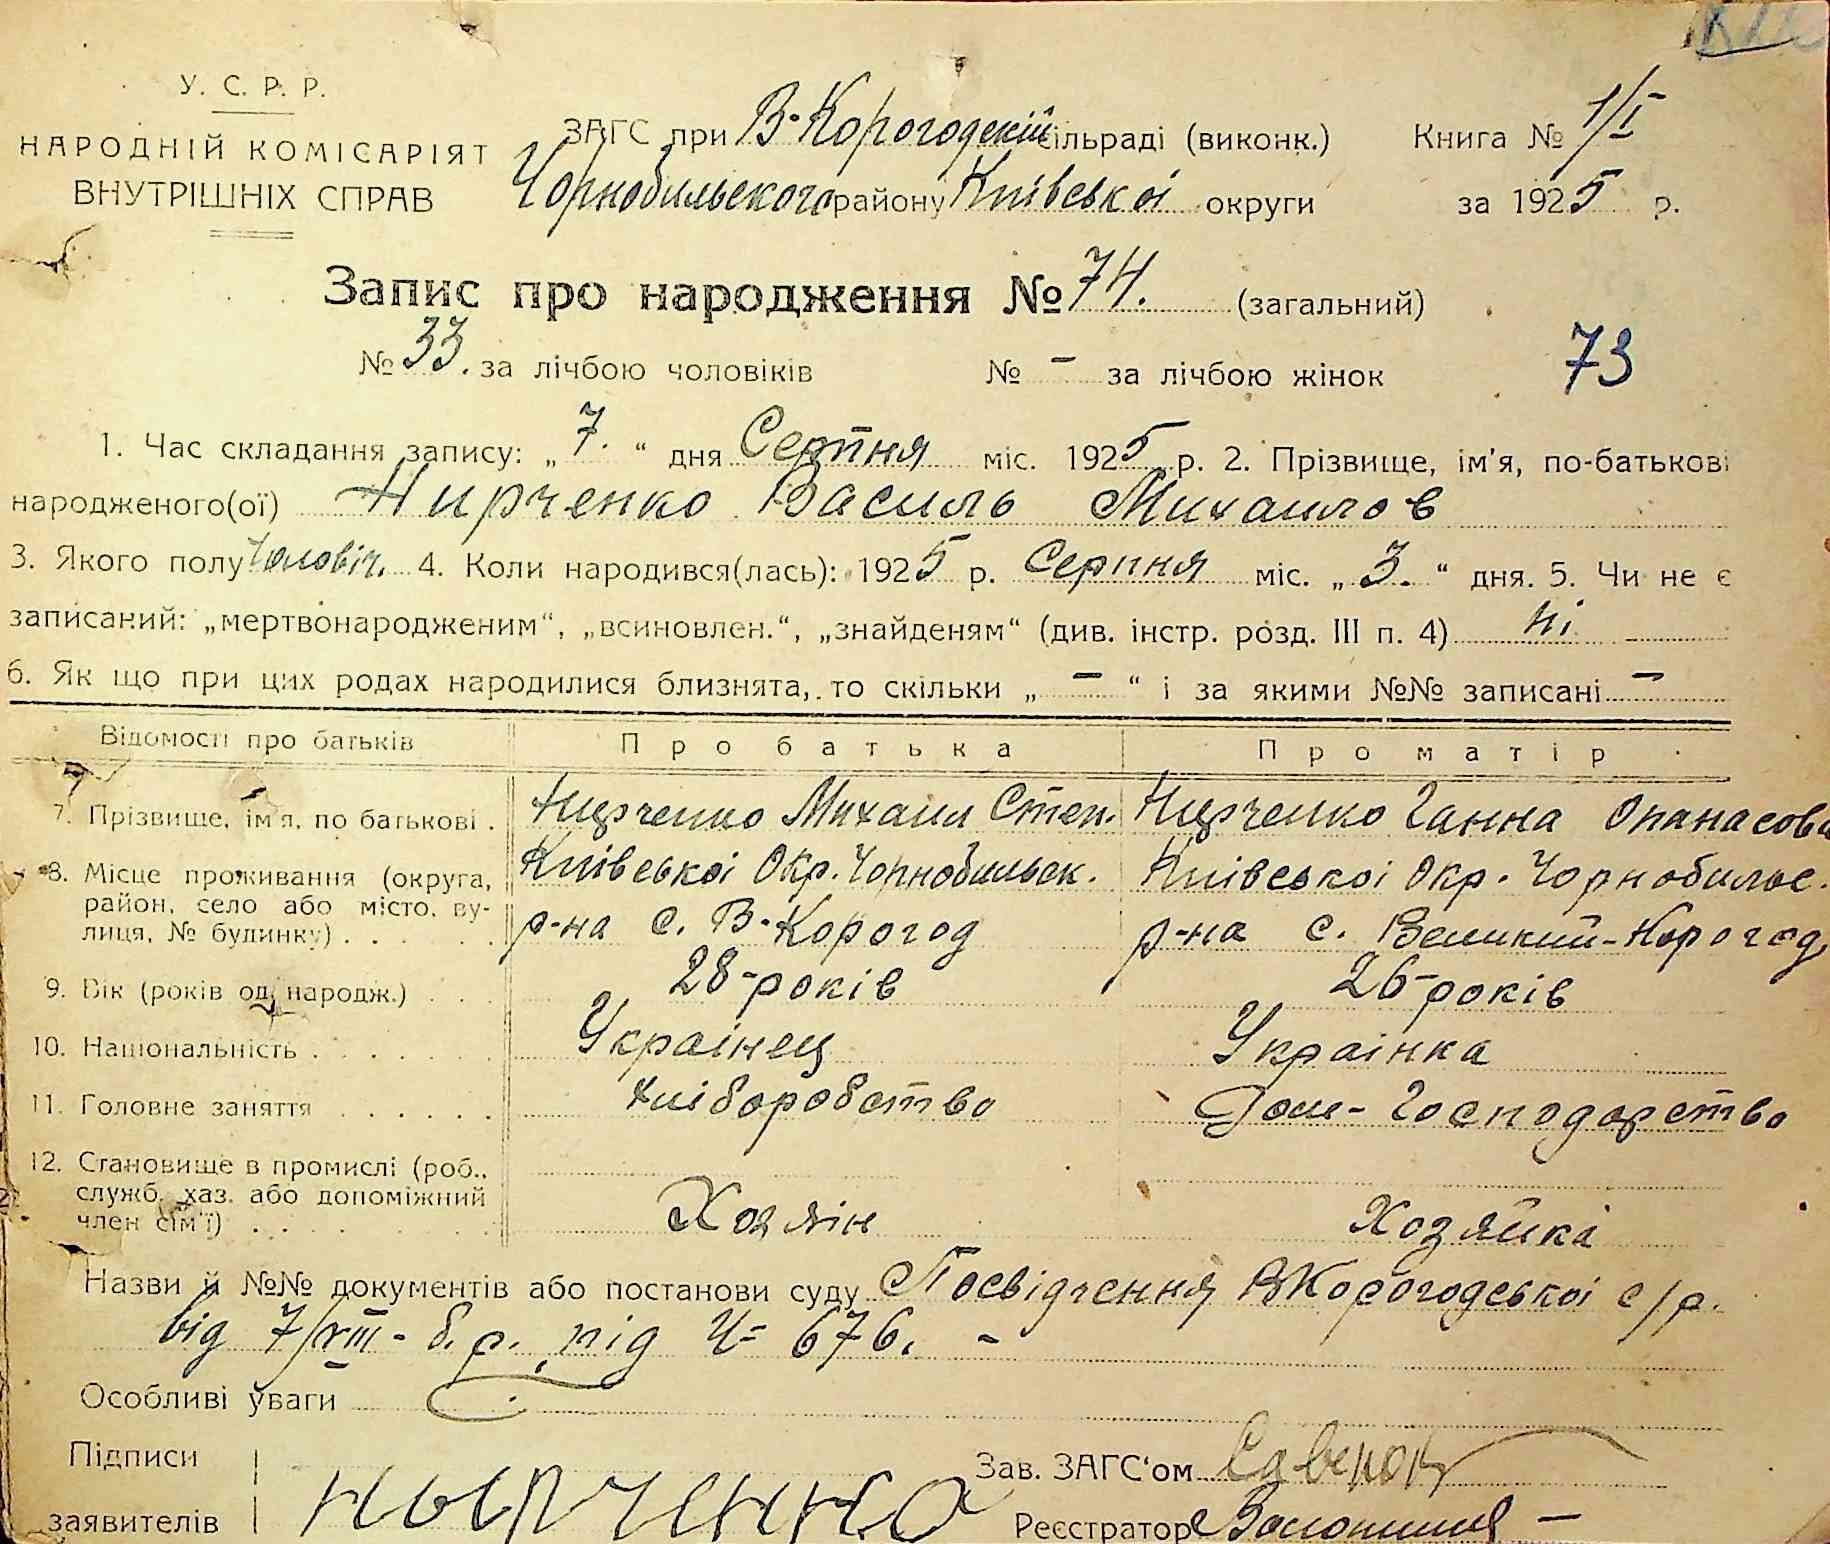 У. С. Р. Р.
НАРОДНІЙ КОМІСАРІЯТ
ВНУТРІШНІХ СПРАВ
ЗАГС при В-Корогодскій сільраді (виконк.) Книга № 1/I
Чорнобильского району Київської округи за 1925 р.
Запис про народження № 74. (загальний)
№ 33. за лічбою чоловіків № – за лічбою жінок 73
1. Час складання запису: „7.“ дня Серпня міс. 1925 р. 2. Прізвище, ім'я, по-батькові
народженого(ої) Нирченко Василь Михаилов
3. Якого полу Чоловіч. 4. Коли народився(лась): 1925 р. Серпня міс. „3.“ дня. 5. Чи не є
записаний: „мертвонародженим“, „всиновлен.“, „знайденям“ (див. інстр. розд. III п. 4) ні
6. Як що при цих родах народилися близнята, то скільки „ – “ і за якими №№ записані –
Відомості про батьків Про батька Про матір
7. Прізвище, ім'я, по батькові . Нирченко Михаил Степ. Нирченко Ганна Опанасова
8. Місце проживання (округа, район, село або місто, вулиця, № будинку) . . . Київської Окр. Чорнобильск. Київської Окр. Чорнобильс.
р-на с. В-Корогод р-на с. Великий-Корогод
9. Вік (років од народж.) . . . 28-років 26-років
10. Національність . . . . . . . Українец Українка
11. Головне заняття . . . . . . Хліборобство Дом-Господорство
12. Становище в промислі (роб., служб. хаз. або допоміжний член сім'ї) . . . Хозяін Хозяйка
Назви й №№ документів або постанови суду Посвідчення ВКорогодської с/р.
від 7/VIII - б.р. під Ч= 676. –
Особливі уваги
Підписи
заявителів
Нырченко
Зав. ЗАГС‘ом
Реєстратор